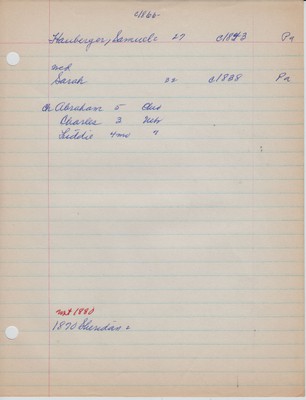 c1866
Hauberger, Samuel 27 c1843 Pa
md
Sarah 22 c1838 Pa
ch Abraham 5 Ohio
Charles 3 Nebr
Liddie 4mo "
not 1880
1870 Sheridan